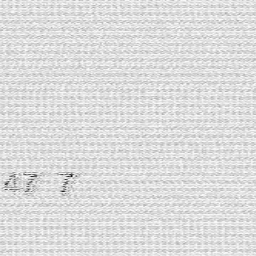 47 7